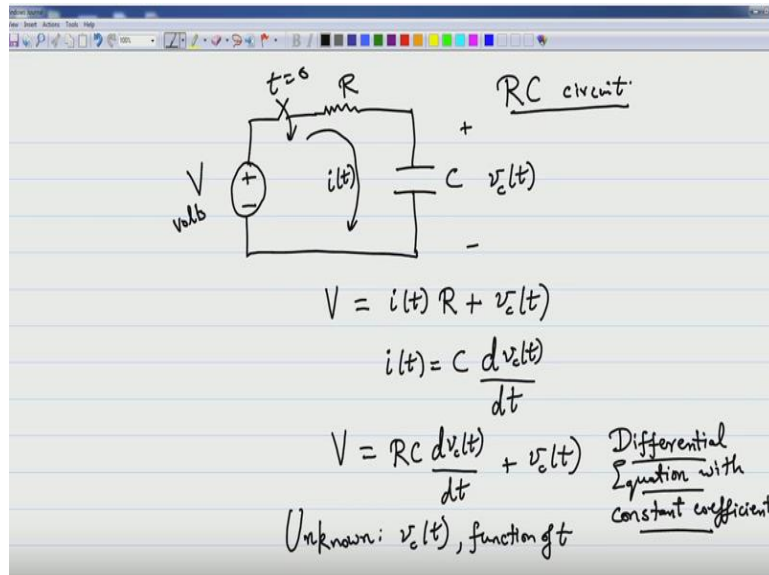 Windows Journal
View Insert Actions Tools Help
100%
B I
t=0
R
RC circuit
V
volts
+
-
i(t)
C
+
v_c(t)
-
V = i(t) R + v_c(t)
i(t) = C dv_c(t)/dt
V = RC dv_c(t)/dt + v_c(t)
Differential
Equation with
constant coefficient
Unknown: v_c(t), function of t